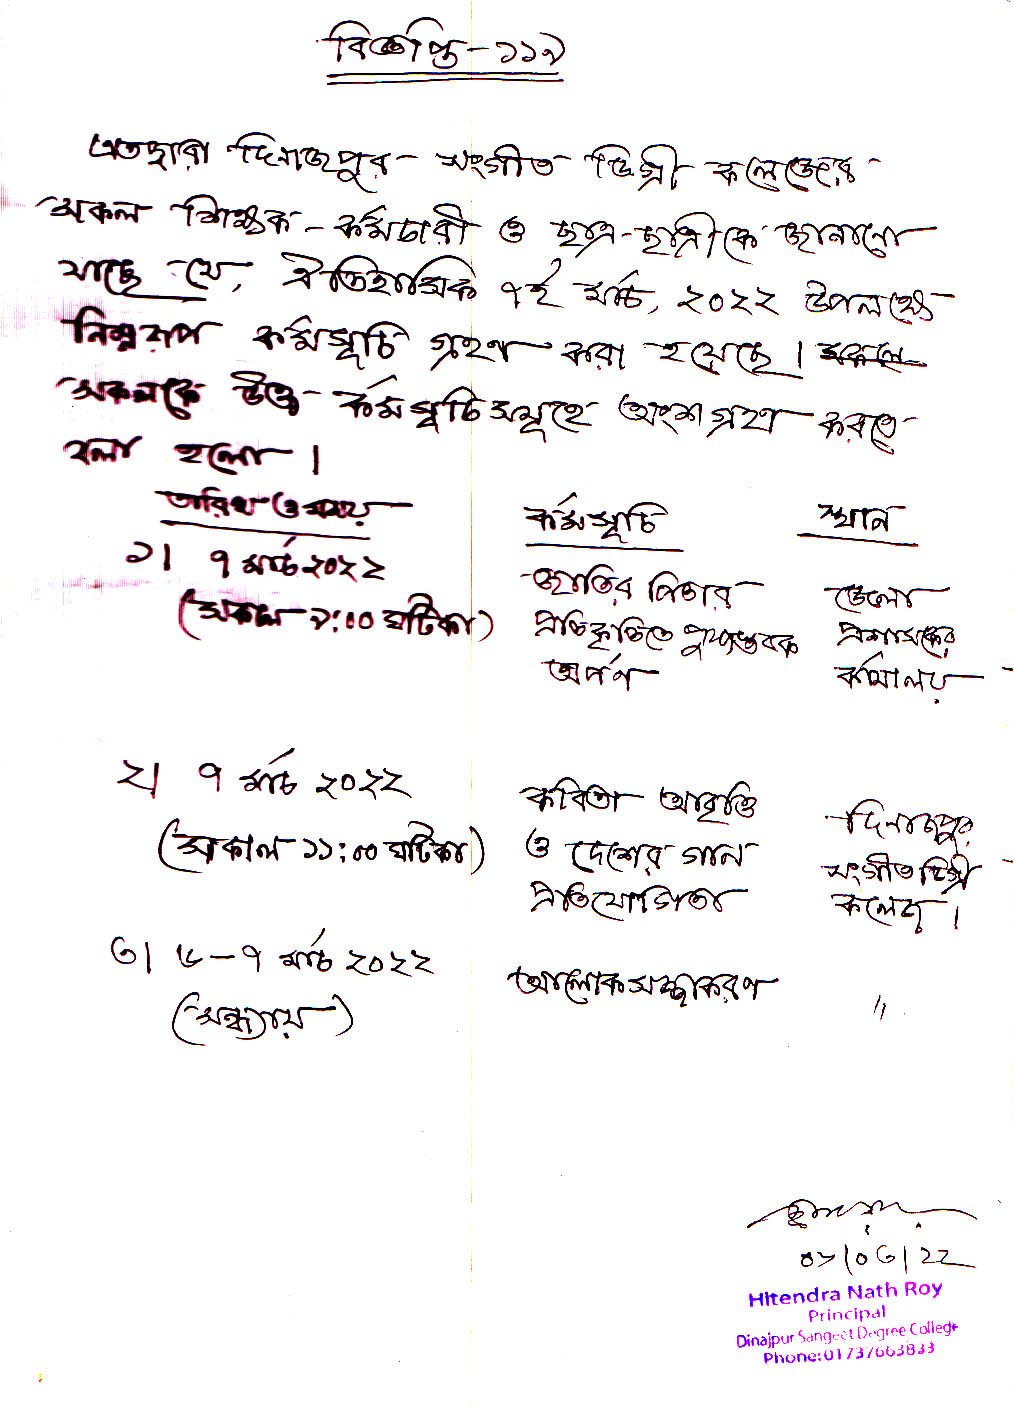 বিজ্ঞপ্তি-১১৯
এতদ্বারা দিনাজপুর সংগীত ডিগ্রী কলেজের
সকল শিক্ষক-কর্মচারী ও ছাত্র-ছাত্রীকে জানানো
যাচ্ছে যে, ঐতিহাসিক ৭ই মার্চ, ২০২২ উপলক্ষে
নিম্নরূপ কর্মসূচি গ্রহণ করা হয়েছে। সকলে
সকলকে উক্ত কর্মসূচিসমূহে অংশগ্রহণ করতে
বলা হলো।
তারিখ ও সময় কর্মসূচি স্থান
১। ৭ মার্চ ২০২২ জাতির পিতার জেলা
(সকাল ৯:০০ ঘটিকা) প্রতিকৃতিতে পুষ্পস্তবক প্রশাসকের
অর্পণ কার্যালয়
২। ৭ মার্চ ২০২২ কবিতা আবৃত্তি দিনাজপুর
(সকাল ১১:০০ ঘটিকা) ও দেশের গান সংগীত ডিগ্রী
প্রতিযোগিতা কলেজ।
৩। ৬-৭ মার্চ ২০২২ আলোকসজ্জাকরণ "
(সন্ধ্যায়)
০৬/০৩/২২
Hitendra Nath Roy
Principal
Dinajpur Sangeet Degree College
Phone:01737663833